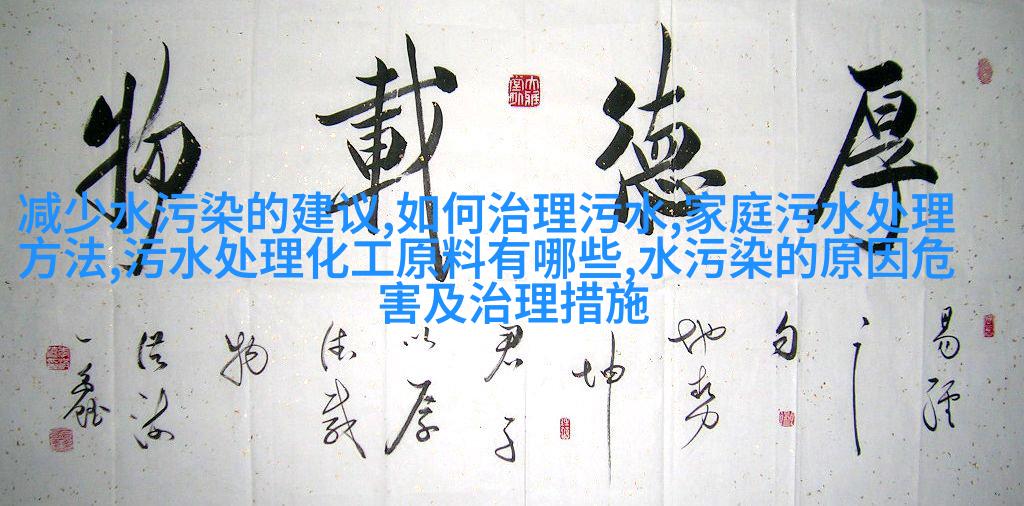 厚德載物
减少水污染的建议,如何治理污水,家庭污水处理
方法,污水处理化工原料有哪些,水污染的原因危
害及治理措施
易經
之
句
地勢
坤
君子
以厚
德載
物